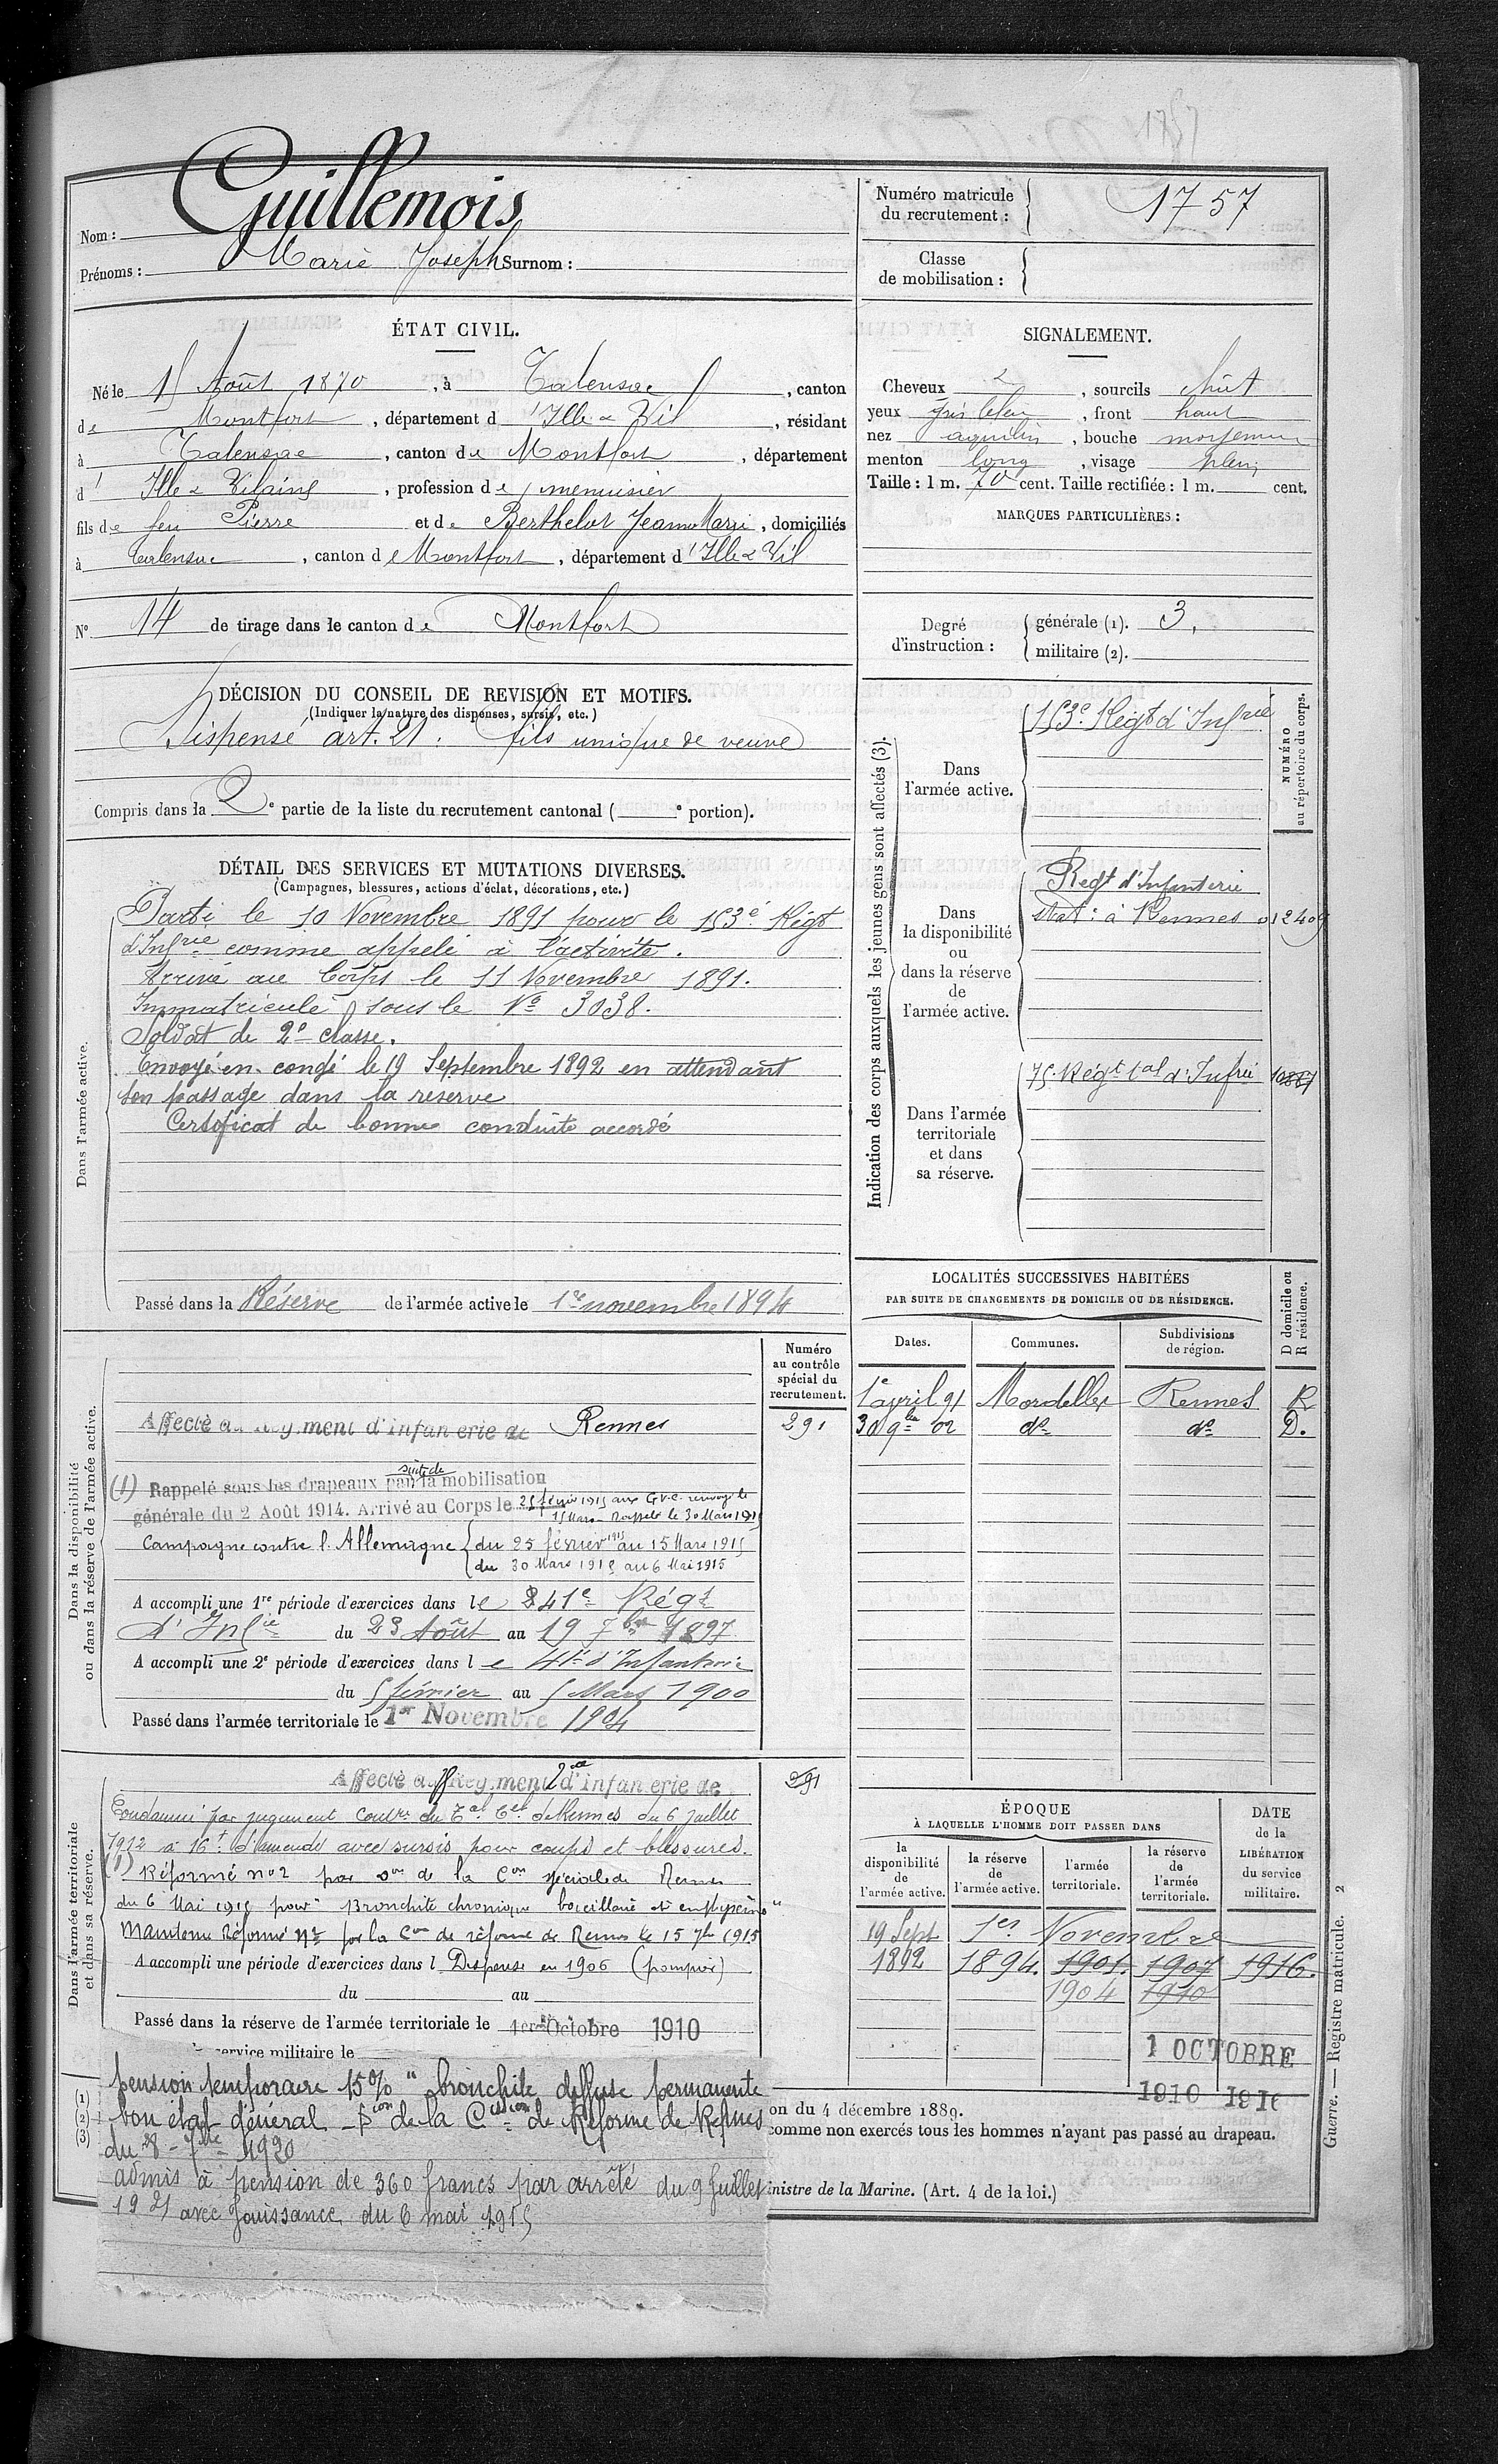 1757
Nom : Guillemois
Prénoms : Marie Joseph Surnom :
Numéro matricule
du recrutement : 1757
Classe
de mobilisation :
ÉTAT CIVIL.
Né le 15 Août 1870, à Talensac, canton
de Montfort, département d'Ille & Vil, résidant
à Talensac, canton de Montfort, département
d'Ille & Vilaine, profession de menuisier
fils de feu Pierre et de Berthelot Jeanne Marie, domiciliés
à Talensac, canton de Montfort, département d'Ille & Vil
N° 14 de tirage dans le canton de Montfort
SIGNALEMENT.
Cheveux, sourcils chat
yeux gris bleu, front haut
nez aquilin, bouche moyenne
menton long, visage plein
Taille : 1 m. 70 cent. Taille rectifiée : 1 m. cent.
MARQUES PARTICULIÈRES :
Degré
d'instruction :
générale (1). 3.
militaire (2).
DÉCISION DU CONSEIL DE REVISION ET MOTIFS.
(Indiquer la nature des dispenses, sursis, etc.)
Dispensé art. 21 : fils unique de veuve
Compris dans la 2e partie de la liste du recrutement cantonal ( e portion).
DÉTAIL DES SERVICES ET MUTATIONS DIVERSES.
(Campagnes, blessures, actions d'éclat, décorations, etc.)
Dans l'armée active.
Parti le 10 Novembre 1891 pour le 153e Régt
d'Infrie comme appelé à l'activité.
Arrivé au Corps le 11 Novembre 1891.
Immatriculé sous le N° 3038.
Soldat de 2e classe.
Envoyé en congé le 19 Septembre 1892 en attendant
son passage dans la réserve
Certificat de bonne conduite accordé
Passé dans la Réserve de l'armée active le 1er novembre 1894
Indication des corps auxquels les jeunes gens sont affectés (3).
NUMÉRO
au répertoire du corps.
Dans
l'armée active.
153e Régt d'Infrie
Dans
la disponibilité
ou
dans la réserve
de
l'armée active.
Regt d'Infanterie
stat: à Rennes 012409
Dans l'armée
territoriale
et dans
sa réserve.
75e Régt tal d'Infrie 10887
LOCALITÉS SUCCESSIVES HABITÉES
PAR SUITE DE CHANGEMENTS DE DOMICILE OU DE RÉSIDENCE.
D domicile ou
R résidence.
Dates. Communes. Subdivisions
de région.
1e avril 91 Mordelles Rennes R
30 9bre 02 do do D.
Dans la disponibilité
ou dans la réserve de l'armée active.
Numéro
au contrôle
spécial du
recrutement.
291
Affecté au Régiment d'infanterie de Rennes
(1) Rappelé sous les drapeaux par suite de la mobilisation
générale du 2 Août 1914. Arrivé au Corps le 25 février 1915 aux G.V.C. renvoyé le
15 Mars - Rappelé le 30 Mars 1915
Campagne contre l'Allemagne du 25 février 1915 au 15 Mars 1915
du 30 Mars 1915 au 6 Mai 1915
A accompli une 1re période d'exercices dans le 241e Régt
d'Infie du 23 Août au 19 7bre 1897
A accompli une 2e période d'exercices dans le 41e d'Infanterie
du 5 février au 5 Mars 1900
Passé dans l'armée territoriale le 1er Novembre 1904
Dans l'armée territoriale
et dans sa réserve.
Affecté au Régiment d'infanterie de
291
Condamné par jugement contre du Tal Cel de Rennes du 6 juillet
1912 à 16f d'amende avec sursis pour coups et blessures.
(1) Réformé n°2 par Don de la Con spéciale de Rennes
du 6 Mai 1915 pour "Bronchite chronique bacillaire et emphysème"
Maintenu Réformé n°2 par la Con de réforme de Rennes le 15 7bre 1915
A accompli une période d'exercices dans l Dispensé en 1906 (pompier)
du au
Passé dans la réserve de l'armée territoriale le 1er Octobre 1910
service militaire le
pension temporaire 15% "bronchite diffuse permanente
bon état général - Pon de la Cission de Réforme de Rennes
du 28 - 7bre 1920
admis à pension de 360 francs par arrêté du 9 Juillet
1921 avec Jouissance du 6 mai 1915
ÉPOQUE
À LAQUELLE L'HOMME DOIT PASSER DANS
DATE
de la
LIBÉRATION
du service
militaire.
la
disponibilité
de
l'armée active.
la réserve
de
l'armée active.
l'armée
territoriale.
la réserve
de
l'armée
territoriale.
19 Sept 1er Novembre
1892 1894. 1901. 1907 1916.
1904 1910
1 OCTOBRE
1910 1916
(1)
(2)
(3)
on du 4 décembre 1889.
comme non exercés tous les hommes n'ayant pas passé au drapeau.
inistre de la Marine. (Art. 4 de la loi.)
Guerre. — Registre matricule. 2